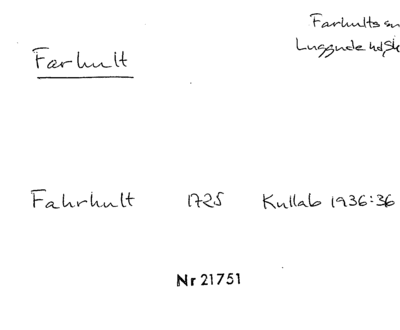 Farhults sn
Luggude hd, Sk
Farhult
Fahrhult 1725 Kullab 1936:36
Nr 21751